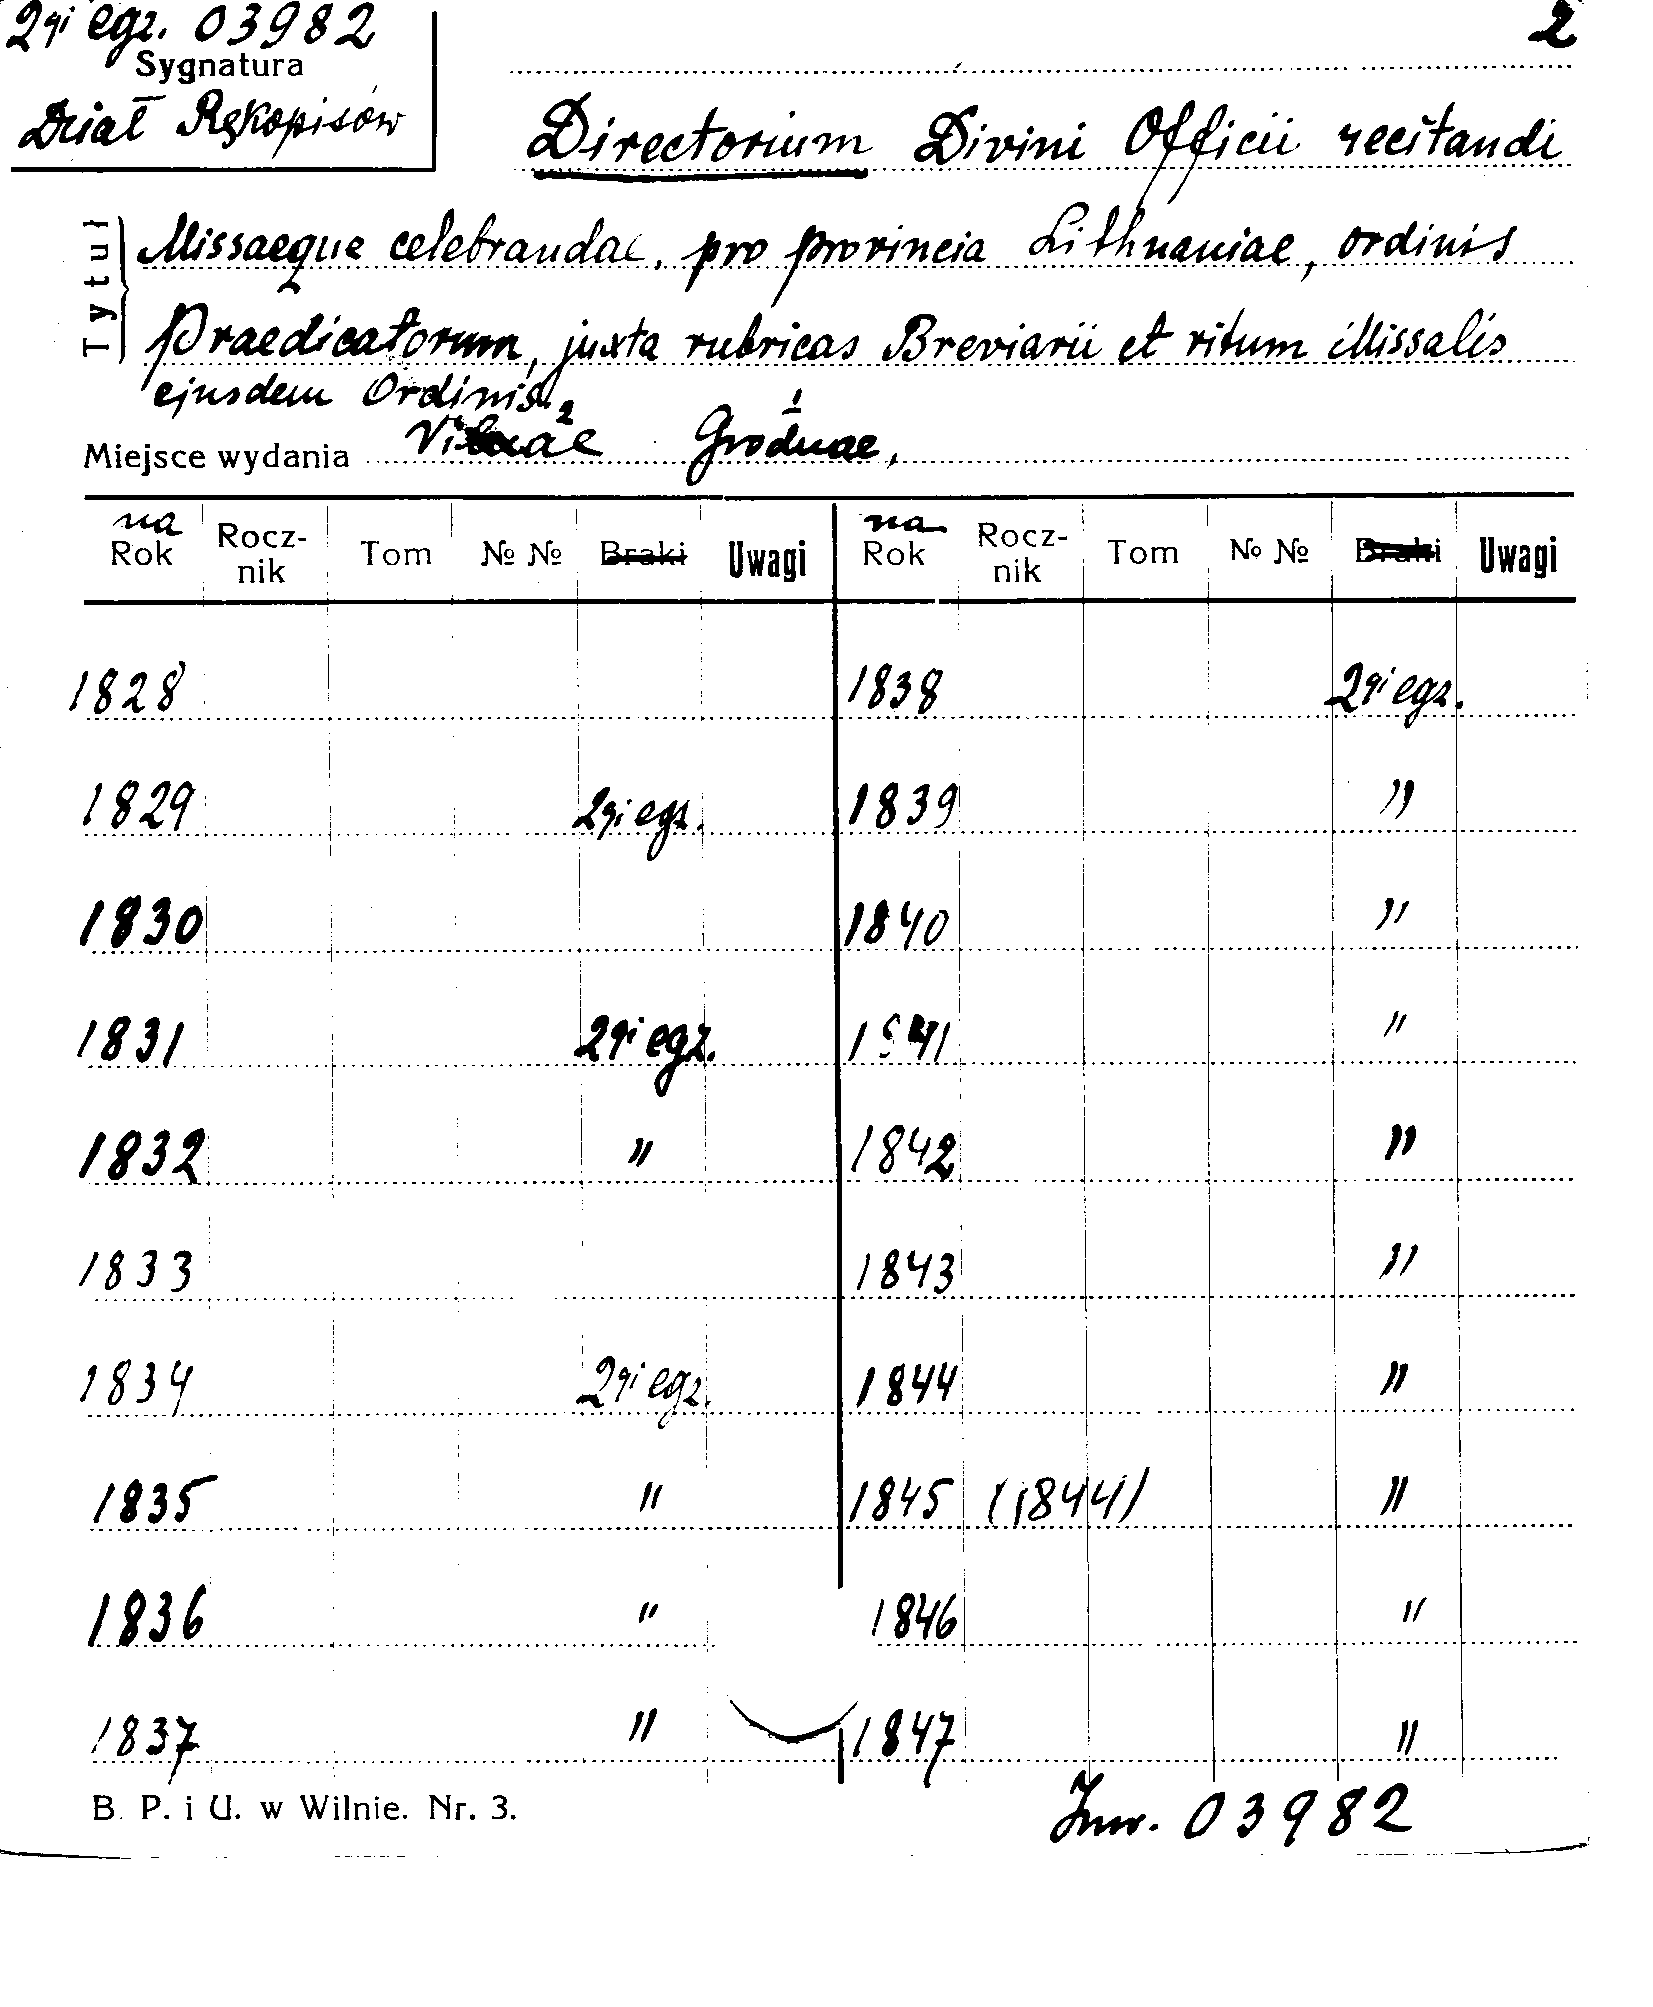 2gi egz. 03982
2
Sygnatura
Dział Rękopisów
Directorium Divini Officii recitandi
Tytuł
Missaeque celebrandae, pro provincia Lithuaniae, ordinis
Praedicatorum, juxta rubricas Breviarii et ritum Missalis
ejusdem Ordinis.
Miejsce wydania Vilnae 2 Grodnae 1,
na Rok Rocznik Tom № № Braki Uwagi na Rok Rocznik Tom № № Braki Uwagi
1828 1838 2gi egz.
1829 2gi egz. 1839 "
1830 1840 "
1831 2gi egz. 1841 "
1832 " 1842 "
1833 1843 "
1834 2gi egz. 1844 "
1835 " 1845 (1844) "
1836 " 1846 "
1837 " 1847 "
B. P. i U. w Wilnie. Nr. 3.
Inw. 03982